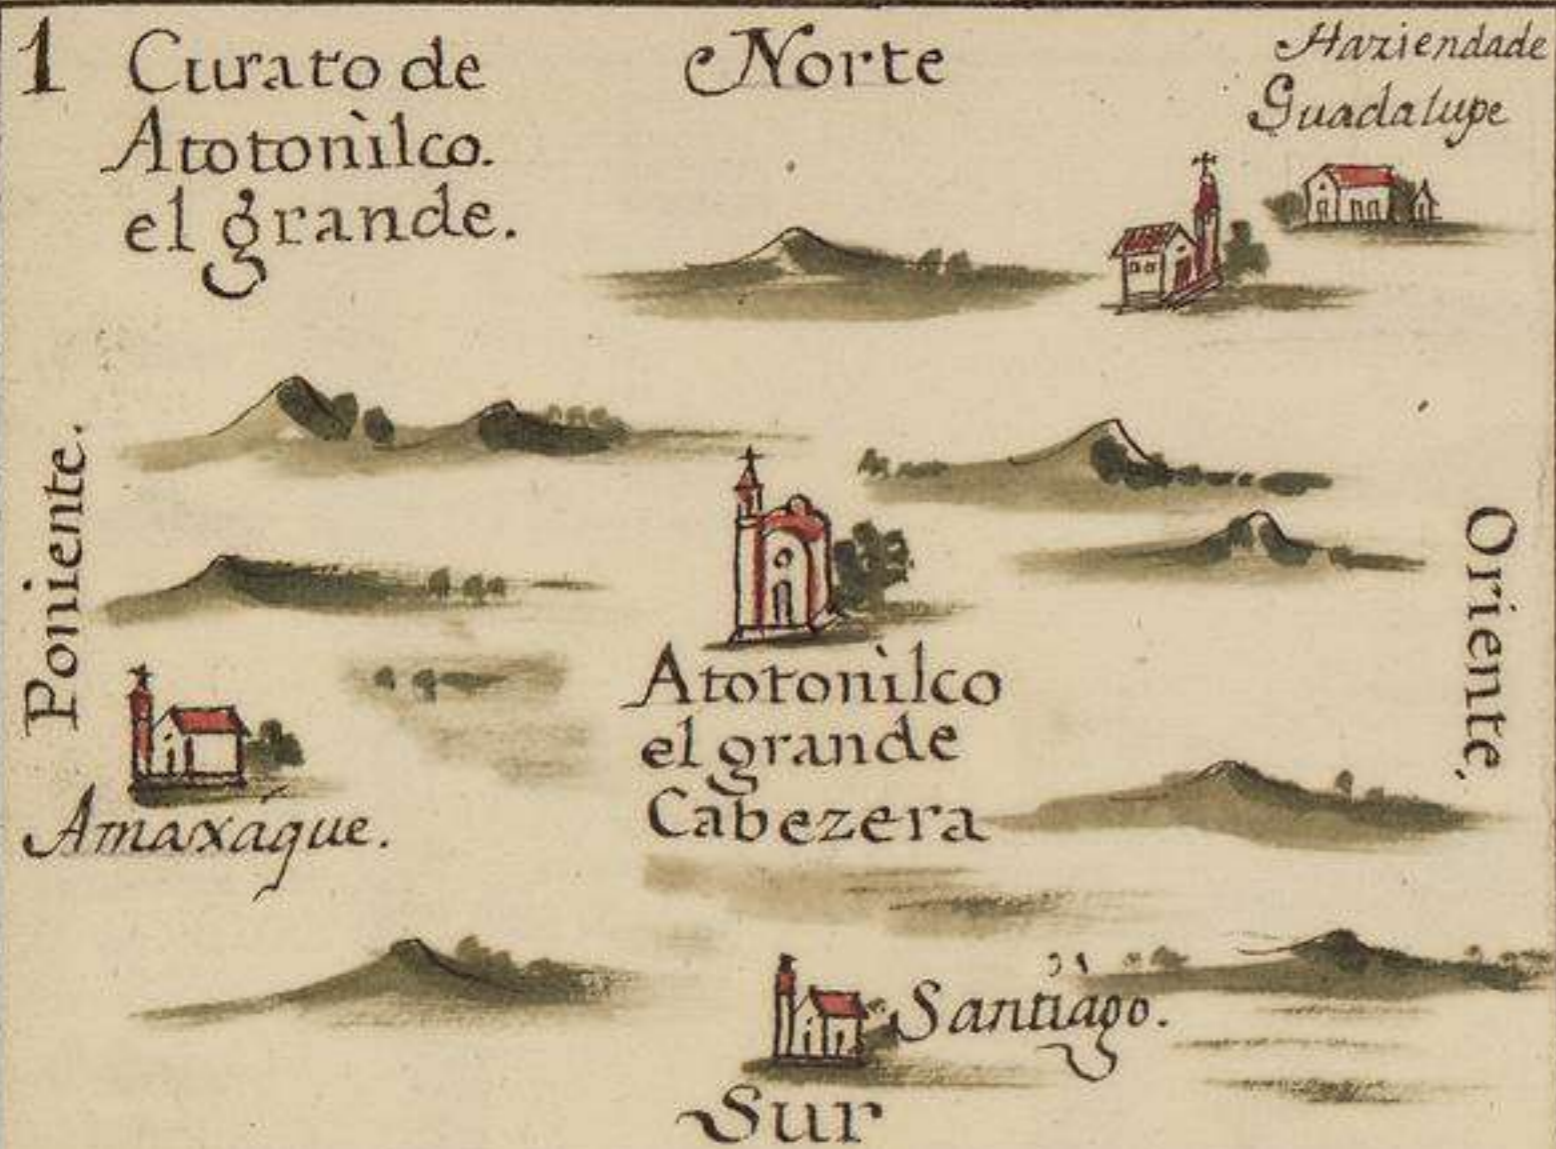 1 Curato de
Atotonìlco.
el grande.
Norte
Haziendade
Guadalupe
Poniente.
Oriente.
Atotonìlco
el grande
Cabezera
Amaxáque.
Santiàgo.
Sur